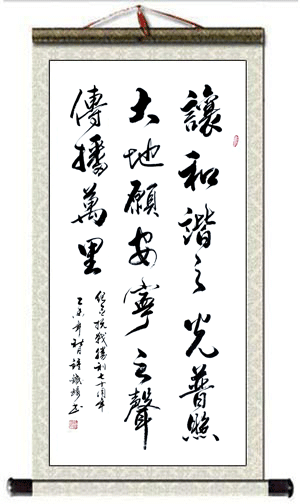 讓和諧之光普照
大地願安寧之聲
傳播萬里
紀念抗戰勝利七十周年
乙未年